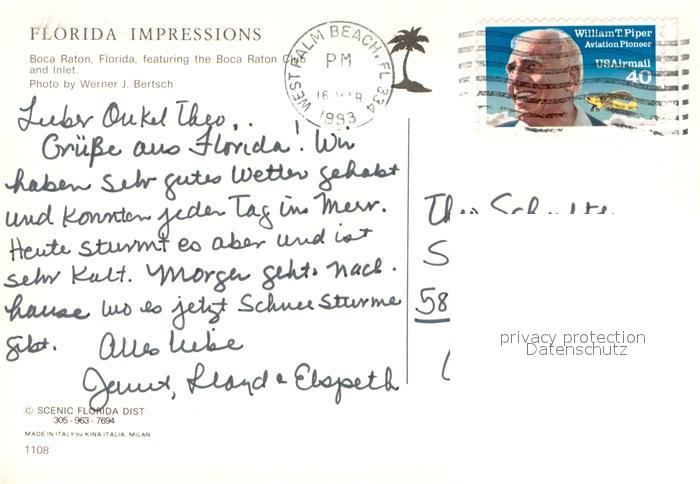 FLORIDA IMPRESSIONS
Boca Raton, Florida, featuring the Boca Raton Club
and Inlet.
Photo by Werner J. Bertsch
WEST PALM BEACH, FL 334
PM
16 MAR
1993
William T. Piper
Aviation Pioneer
USAirmail
40
Lieber Onkel Theo,
Grüße aus Florida! Wir
haben sehr gutes Wetter gehabt
und konnten jeden Tag ins Meer.
Heute stürmt es aber und ist
sehr kalt. Morgen geht's nach
hause wo es jetzt Schnee stürme
gibt. Alles liebe
Janet, Lloyd & Elspeth
Theo
S
58
privacy protection
Datenschutz
© SCENIC FLORIDA DIST
305-963-7694
MADE IN ITALY by KINA ITALIA, MILAN
1108